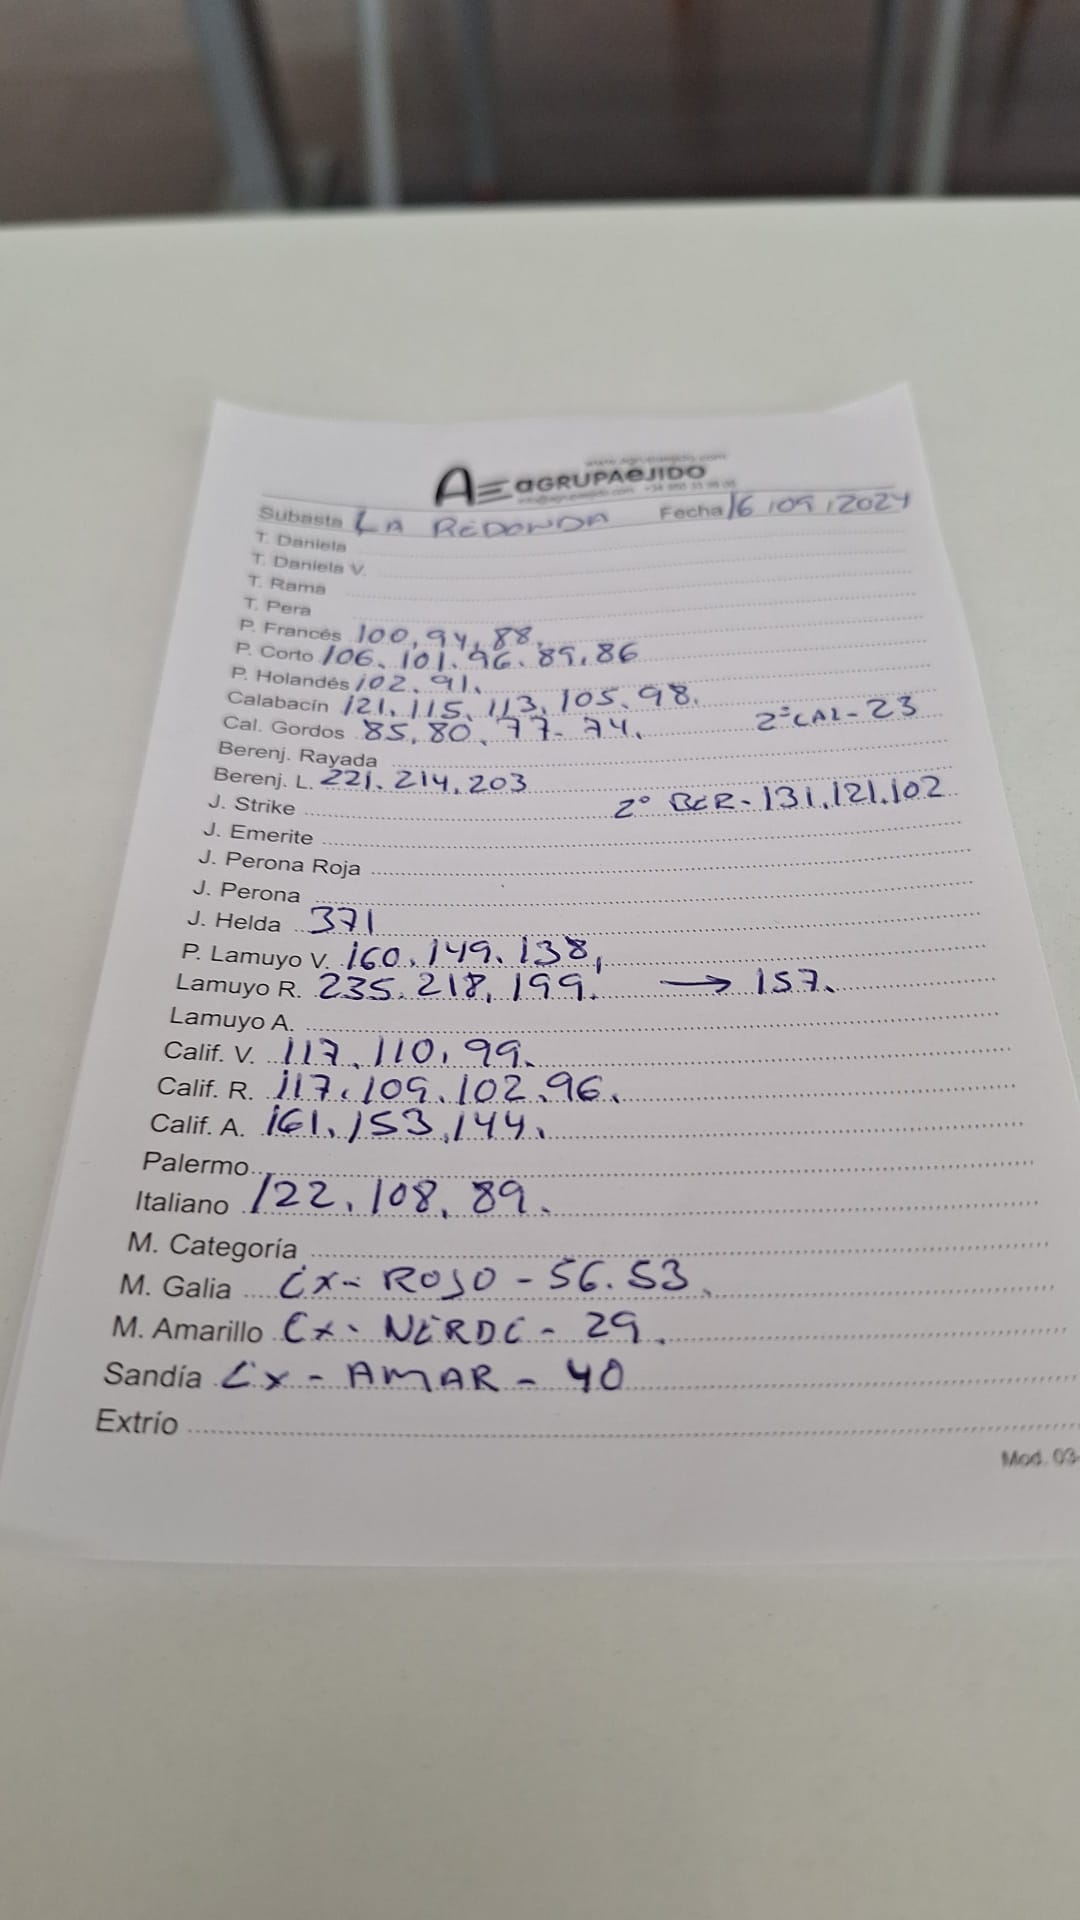 AGRUPAEJIDO
Subasta LA REDONDA Fecha 16/09/2024
T. Daniela
T. Daniela V.
T. Rama
T. Pera
P. Francés 100, 94, 88.
P. Corto 106. 101. 96. 89. 86
P. Holandés 102. 91.
Calabacín 121. 115. 113. 105. 98.
Cal. Gordos 85. 80. 77- 74. 2ª CAL - 23
Berenj. Rayada
Berenj. L. 221. 214. 203
J. Strike 2º BER - 131. 121. 102
J. Emerite
J. Perona Roja
J. Perona
J. Helda 371
P. Lamuyo V. 160. 149. 138,
Lamuyo R. 235. 218. 199. → 157.
Lamuyo A.
Calif. V. 117. 110. 99.
Calif. R. 117. 109. 102. 96.
Calif. A. 161. 153. 144.
Palermo
Italiano 122. 108. 89.
M. Categoría
M. Galia Ex - ROJO - 56. 53.
M. Amarillo Ex - VERDE - 29.
Sandía Ex - AMAR - 40
Extrío
Mod. 03-